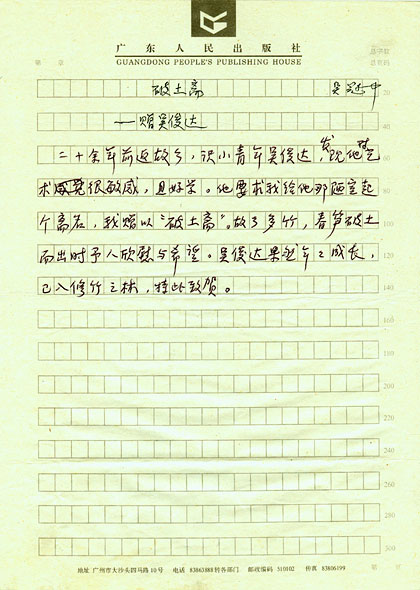 广东人民出版社
GUANGDONG PEOPLE'S PUBLISHING HOUSE
第 章
破土斋 吴冠中
20
——赠吴俊达
40
二十余年前返故乡,识小青年吴俊达,发现他艺
60
术感觉很敏感,且好学。他要求我给他那陋室起
80
个斋名,我赠以“破土斋”。故乡多竹,春笋破土
100
而出时予人欣慰与希望。吴俊达果然年年成长,
120
已入修竹之林,特此致贺。
140
160
180
200
220
240
260
280
300
地址 广州市大沙头四马路10号 电话 83863888转各部门 邮政编码 510102 传真 83806199 第 页